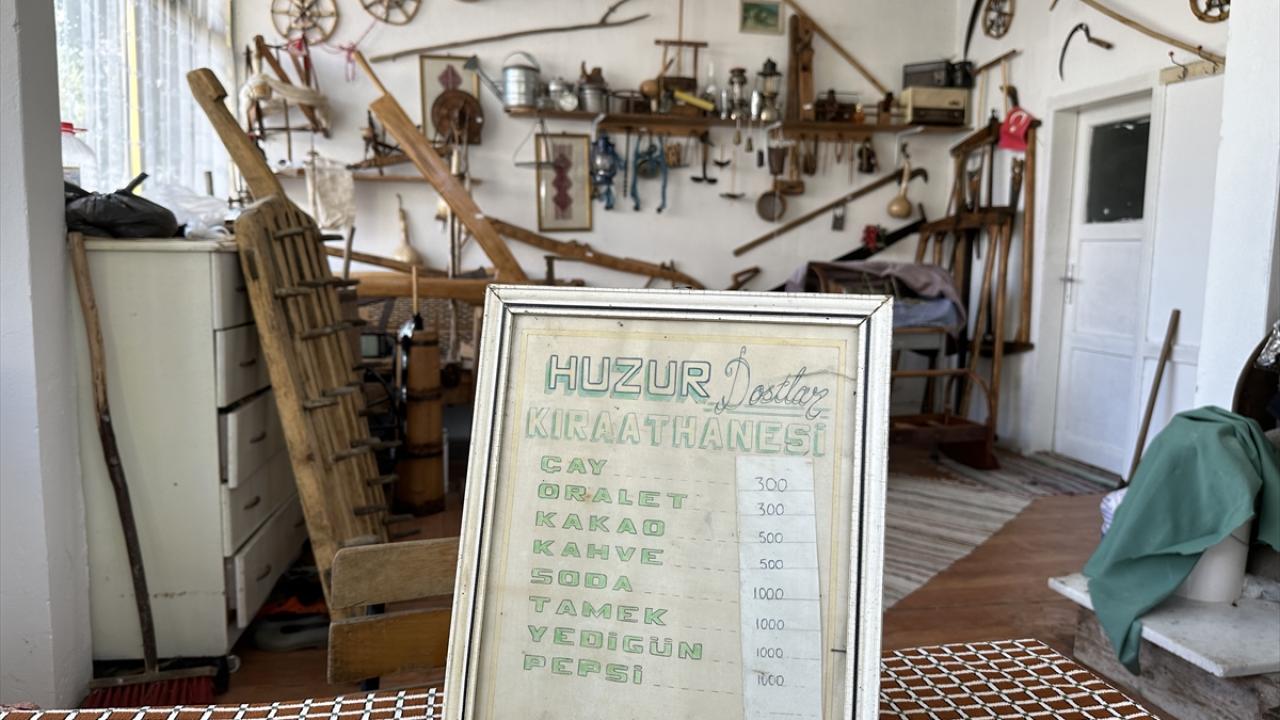 HUZUR Dostlar
KIRAATHANESİ
ÇAY 300
ORALET 300
KAKAO 500
KAHVE 500
SODA 1000
TAMEK 1000
YEDİGÜN 1000
PEPSİ 1000